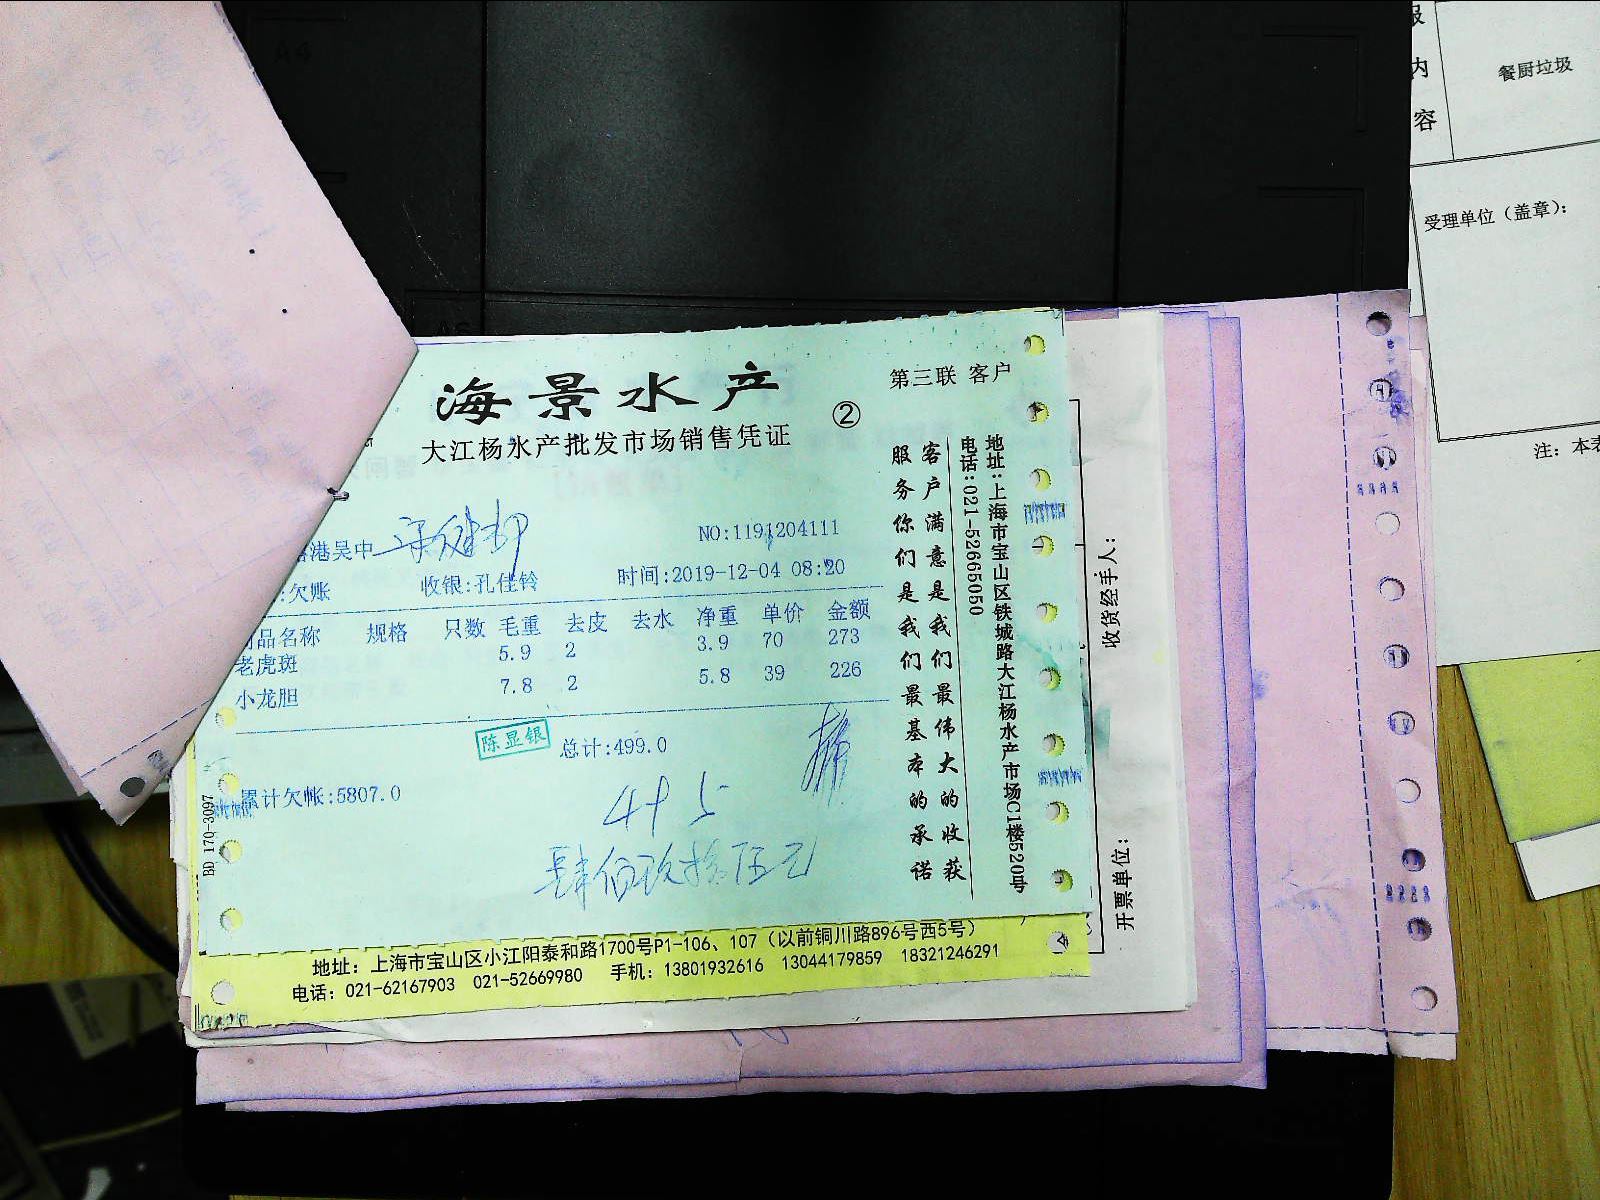 海景水产
②
第三联 客户
大江杨水产批发市场销售凭证
港吴中
NO:1191204111
:欠账 收银:孔佳铃 时间:2019-12-04 08:20
品名称 规格 只数 毛重 去皮 去水 净重 单价 金额
老虎斑 5.9 2 3.9 70 273
小龙胆 7.8 2 5.8 39 226
陈显银
总计:499.0
累计欠帐:5807.0
495
肆佰玖拾伍元
BD 170-3097
客户满意是我们最伟大的收获
服务你们是我们最基本的承诺
地址:上海市宝山区铁城路大江杨水产市场C1楼520号
电话:021-52665050
地址：上海市宝山区小江阳泰和路1700号P1-106、107（以前铜川路896号西5号）
电话：021-62167903 021-52669980 手机：13801932616 13044179859 18321246291
收货经手人：
开票单位：
内
容
餐厨垃圾
受理单位（盖章）：
注：本表
A6